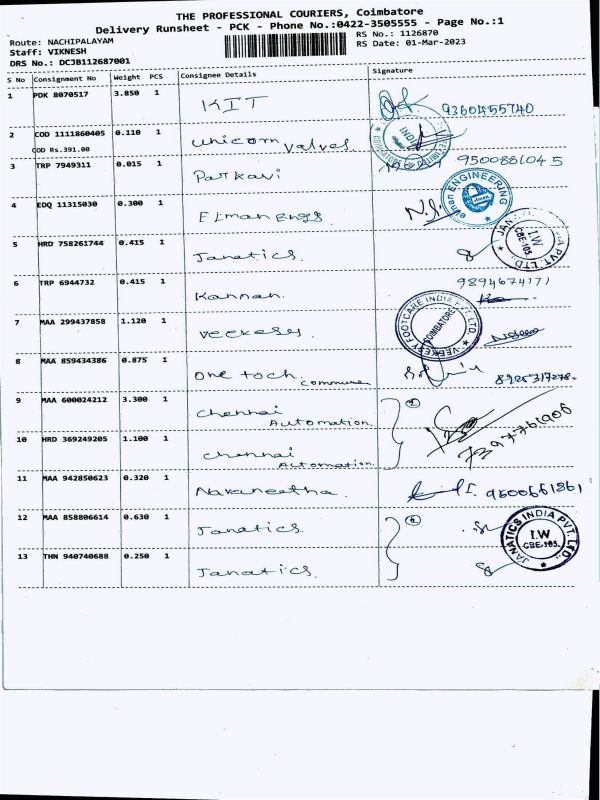 THE PROFESSIONAL COURIERS, Coimbatore
Delivery Runsheet - PCK - Phone No.:0422-3505555 - Page No.:1
Route: NACHIPALAYAM
RS No.: 1126870
Staff: VIKNESH
RS Date: 01-Mar-2023
DRS No.: DCJB112687001
S No Consignment No Weight PCS Consignee Details Signature
1 PDK 8070517 3.850 1 KIT 9360455740
2 COD 1111860405 0.110 1 unicom valves
COD Rs.391.00
3 TRP 7949311 0.015 1 Parkavi 9500881045
4 EDQ 11315030 0.300 1 Elman Engg
ENGINEERING
5 HRD 758261744 0.415 1 Janatics
I.W
CBE-105.
PVT. LTD.
6 TRP 6944732 0.415 1 Kannan. 9894674171
7 MAA 299437858 1.120 1 veekesy
VEEKESY FOOTCARE INDIA PVT. LTD
COIMBATORE
8 MAA 859434386 0.875 1 one toch 8925317278.
9 MAA 600024212 3.300 1 Chennai
Automation
10 HRD 369249205 1.100 1 Chennai
Automation
11 MAA 942850623 0.320 1 Navaneetha 9500661861
12 MAA 858806614 0.630 1 Janatics
JANATICS INDIA PVT. LTD.
I.W
CBE-105.
13 THN 940740688 0.250 1 Janatics.